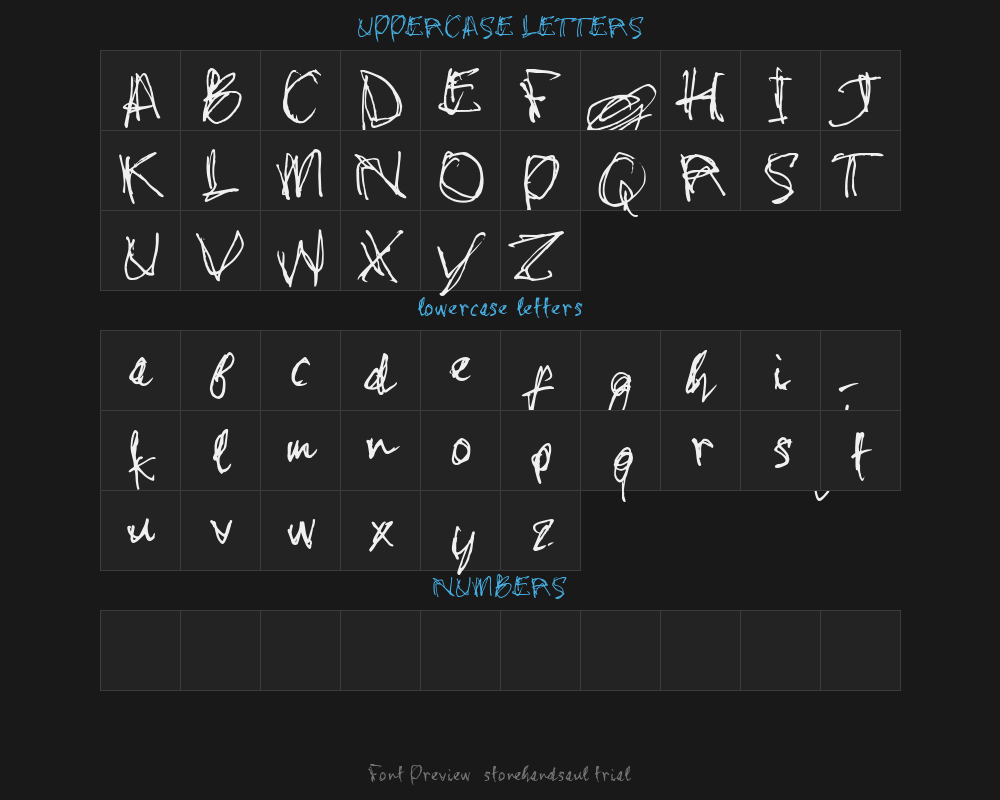 UPPERCASE LETTERS
A B C D E F H I J
K L M N O P Q R S T
U V W X Y Z
lowercase letters
a b c d e f g h i
k l m n o p q r s t
u v w x y z
NUMBERS
Font Preview stonehandsaul trial